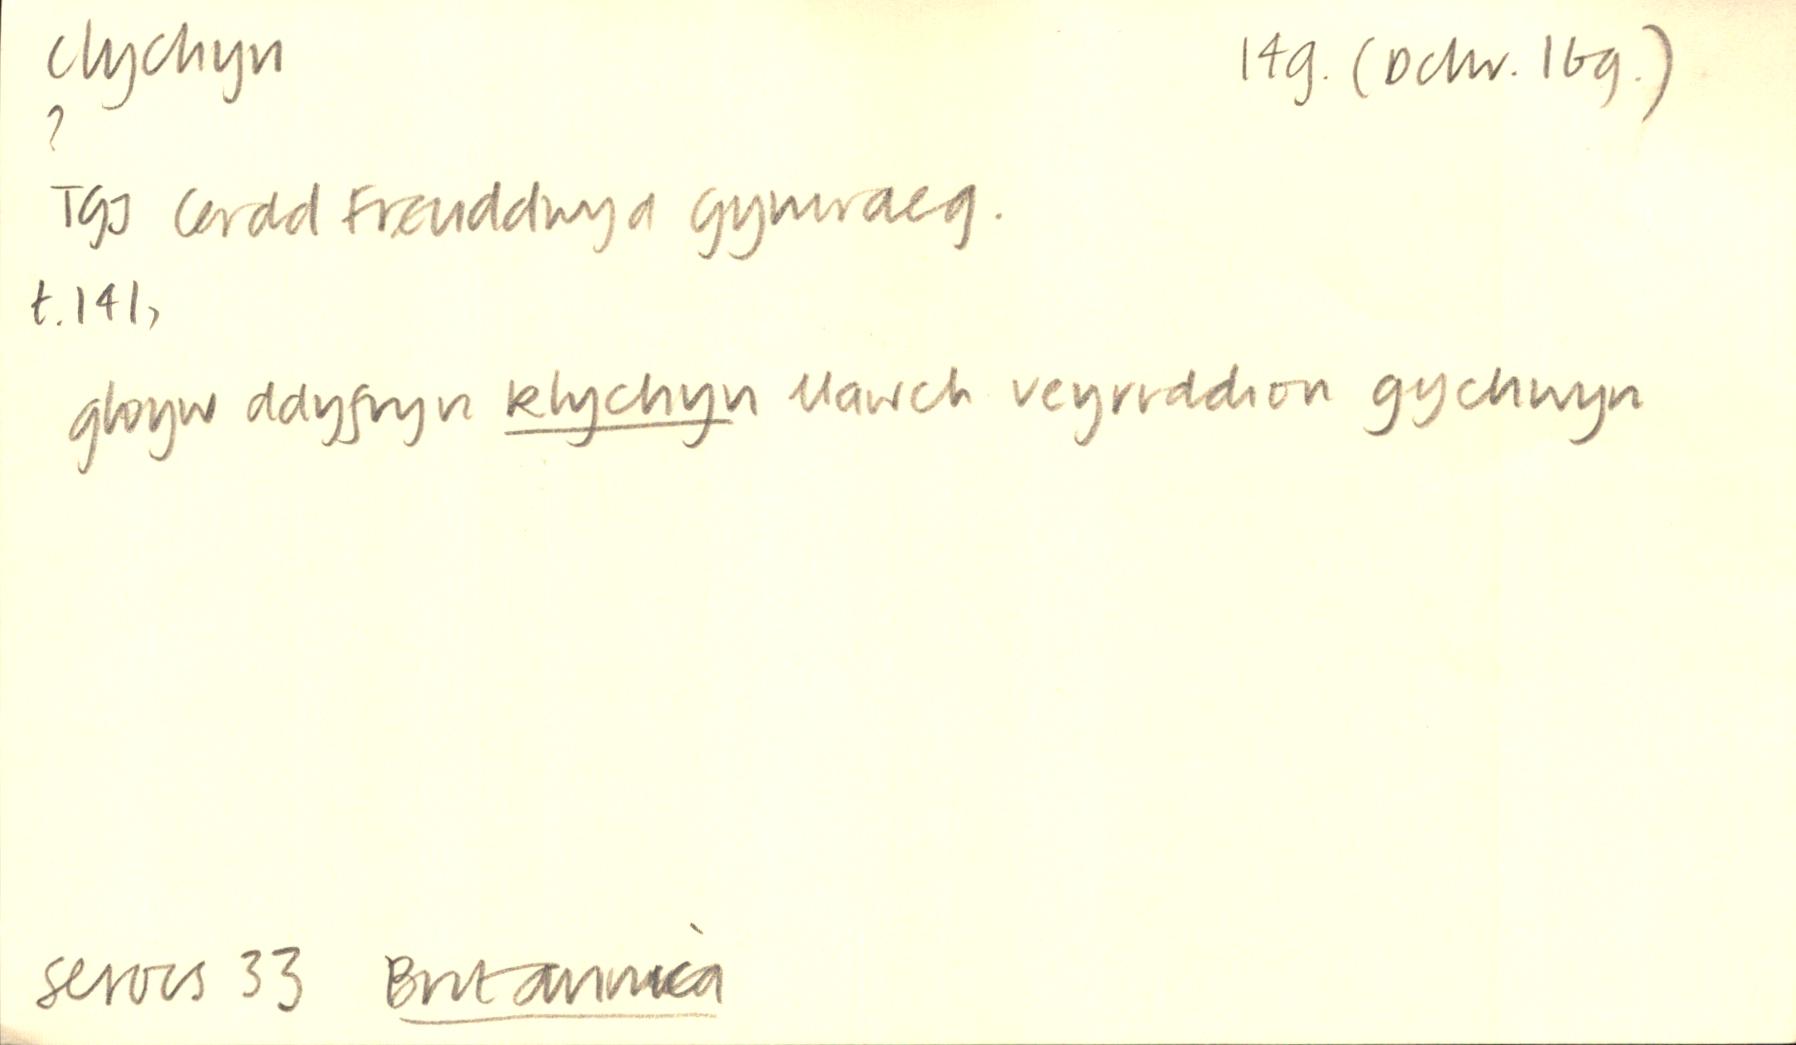 clychyn 14g. (Dchr. 16g.)
?
TGJ Cerdd Freuddwyd Gymraeg.
t.141,
gloyw ddyfryn klychyn llawch veyrrddion gychwyn
serocs 33 Britannica